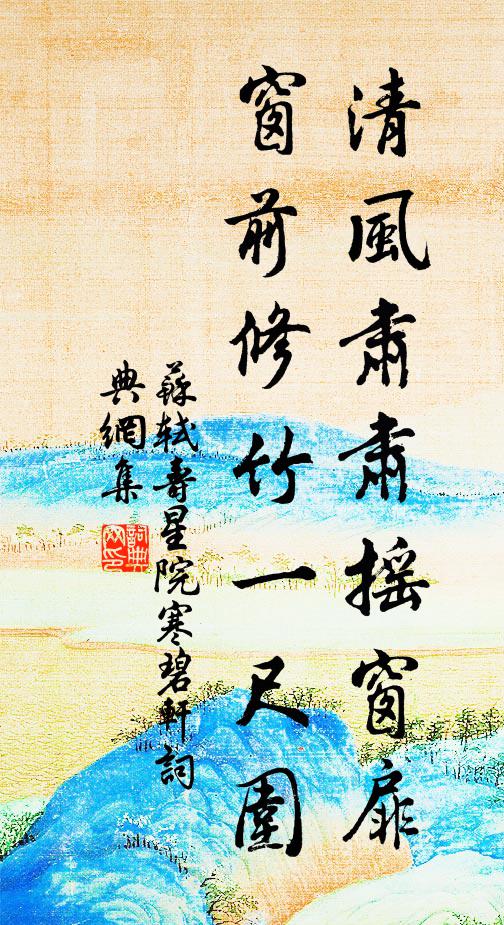 清風肅肅搖窗扉
窗前修竹一尺圍
蘇軾壽星院寒碧軒詞
典網集